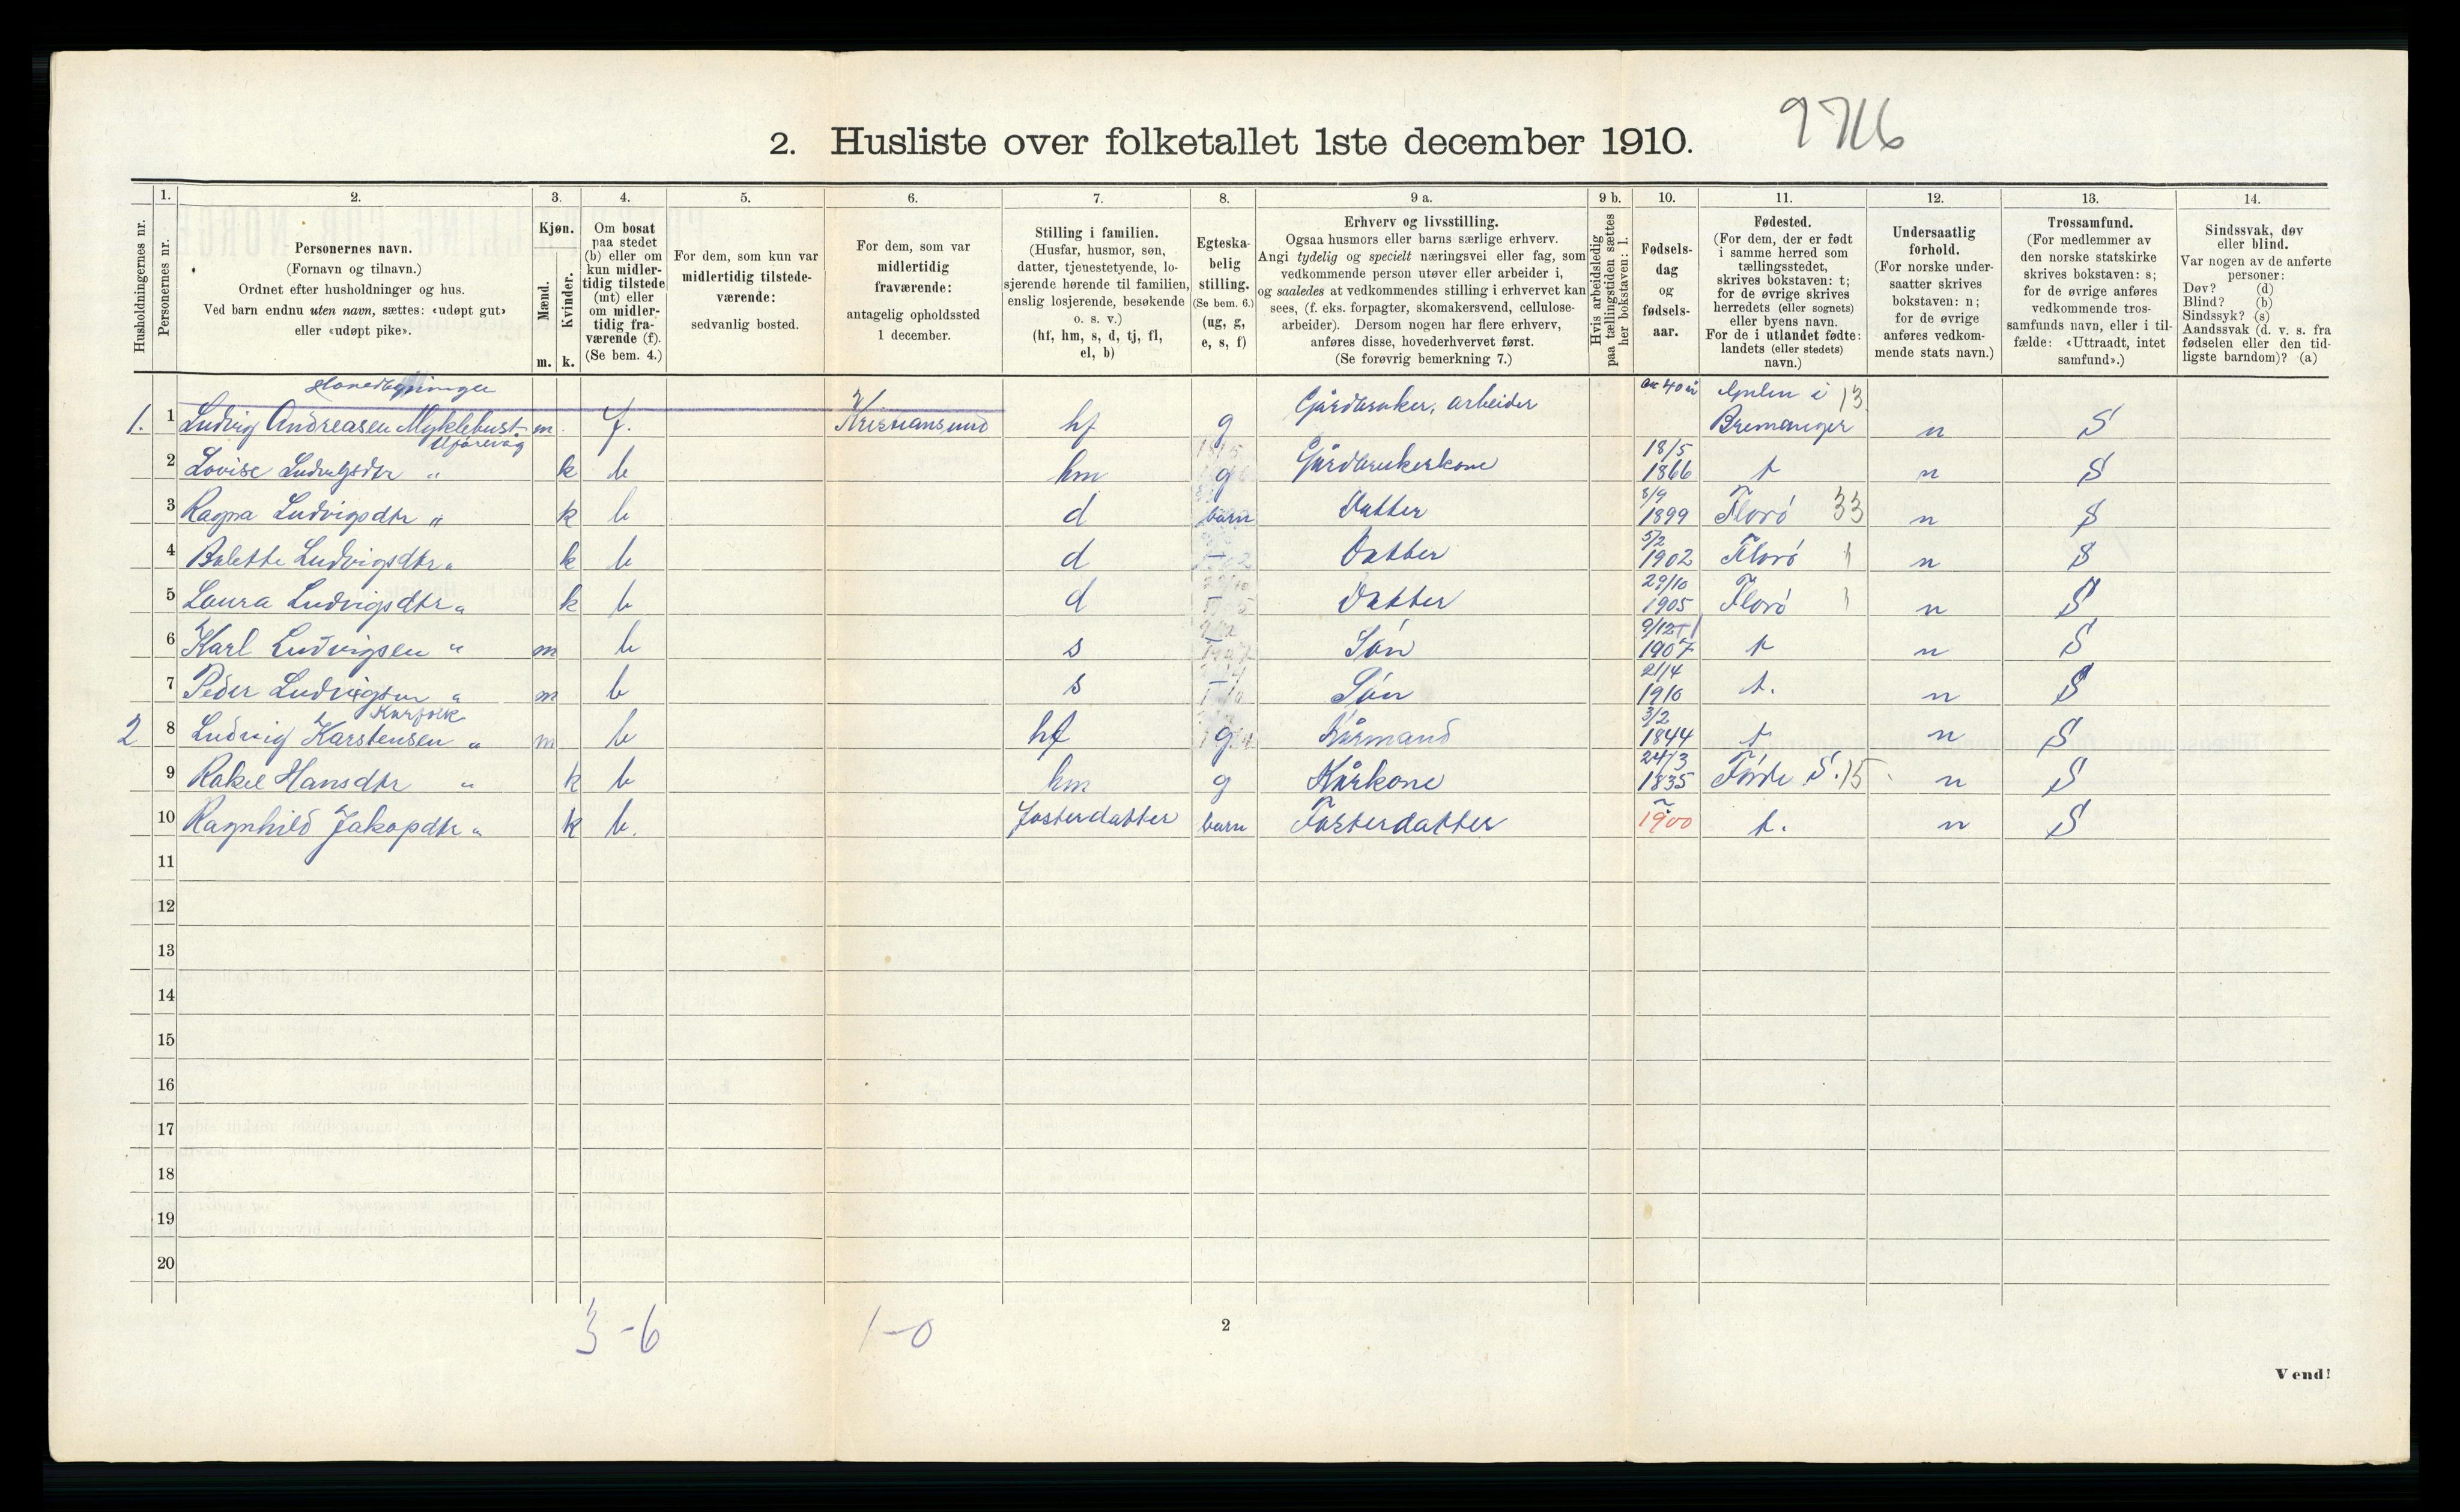 2. Husliste over folketallet 1ste december 1910. 9716
1. 2. 3. 4. 5. 6. 7. 8. 9 a. 9 b. 10. 11. 12. 13. 14.
Husholdningernes nr.
Personernes nr.
Personernes navn.
(Fornavn og tilnavn.)
Ordnet efter husholdninger og hus.
Ved barn endnu uten navn, sættes: «udøpt gut»
eller «udøpt pike».
Kjøn.
Mænd.
m.
Kvinder.
k.
Om bosat
paa stedet
(b) eller om
kun midler-
tidig tilstede
(mt) eller
om midler-
tidig fra-
værende (f).
(Se bem. 4.)
For dem, som kun var
midlertidig tilstede-
værende:
sedvanlig bosted.
For dem, som var
midlertidig
fraværende:
antagelig opholdssted
1 december.
Stilling i familien.
(Husfar, husmor, søn,
datter, tjenestetyende, lo-
sjerende hørende til familien,
enslig losjerende, besøkende
o. s. v.)
(hf, hm, s, d, tj, fl,
el, b)
Egteska-
belig
stilling.
(Se bem. 6.)
(ug, g,
e, s, f)
Erhverv og livsstilling.
Ogsaa husmors eller barns særlige erhverv.
Angi tydelig og specielt næringsvei eller fag, som
vedkommende person utøver eller arbeider i,
og saaledes at vedkommendes stilling i erhvervet kan
sees, (f. eks. forpagter, skomakersvend, cellulose-
arbeider). Dersom nogen har flere erhverv,
anføres disse, hovederhvervet først.
(Se forøvrig bemerkning 7.)
Hvis arbeidsledig
paa tællingstiden sættes
her bokstaven: l.
Fødsels-
dag
og
fødsels-
aar.
Fødested.
(For dem, der er født
i samme herred som
tællingsstedet,
skrives bokstaven: t;
for de øvrige skrives
herredets (eller sognets)
eller byens navn.
For de i utlandet fødte:
landets (eller stedets)
navn.)
Undersaatlig
forhold.
(For norske under-
saatter skrives
bokstaven: n;
for de øvrige
anføres vedkom-
mende stats navn.)
Trossamfund.
(For medlemmer av
den norske statskirke
skrives bokstaven: s;
for de øvrige anføres
vedkommende tros-
samfunds navn, eller i til-
fælde: «Uttraadt, intet
samfund».)
Sindssvak, døv
eller blind.
Var nogen av de anførte
personer:
Døv? (d)
Blind? (b)
Sindssyk? (s)
Aandssvak (d. v. s. fra
fødselen eller den tid-
ligste barndom)? (a)
40 år i 13
1. 1 Ludvig Andreasen Myklebust m f. Kristiansund hf g Gårdbruker, arbeider Bremanger n S
2 Lovise Ludvigsdtr " k b hm g Gårdbrukerkone 18/5 1866 t n S
3 Ragna Ludvigsdtr " k b d barn Datter 8/9 1899 Florö 33 n S
4 Bolette Ludvigsdtr " k b d " Datter 5/2 1902 Florö n S
5 Laura Ludvigsdtr " k b d " Datter 29/10 1905 Florö n S
6 Karl Ludvigsen " m b s " Sön 9/12 1907 t n S
7 Peder Ludvigsen " m b s " Sön 21/4 1910 t. n S
Kårfolk
2 8 Ludvig Karstensen " m b hf g Kårmand 3/2 1844 t n S
9 Rakel Hansdtr " k b hm g Kårkone 24/3 1835 Förde S. 15 n S
10 Ragnhild Jakopdtr " k b. fosterdatter barn Fosterdatter 1900 t. n S
11
12
13
14
15
16
17
18
19
20
3-6 1-0
2
Vend!